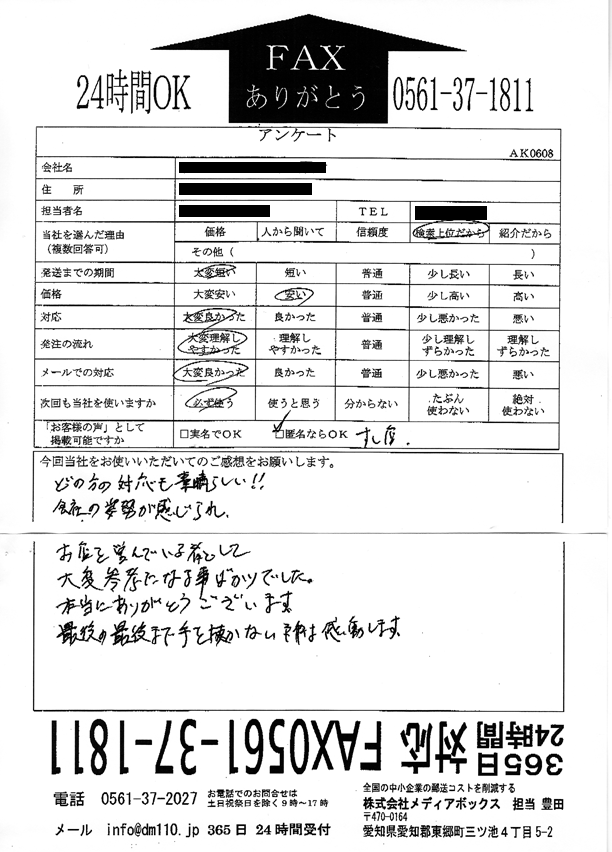 FAX
24時間OK
ありがとう
0561-37-1811
アンケート
AK0608
会社名
住　所
担当者名 TEL
当社を選んだ理由（複数回答可） 価格 人から聞いて 信頼度 検索上位だから 紹介だから
その他（ ）
発送までの期間 大変短い 短い 普通 少し長い 長い
価格 大変安い 安い 普通 少し高い 高い
対応 大変良かった 良かった 普通 少し悪かった 悪い
発注の流れ 大変理解しやすかった 理解しやすかった 普通 少し理解しずらかった 理解しずらかった
メールでの対応 大変良かった 良かった 普通 少し悪かった 悪い
次回も当社を使いますか 必ず使う 使うと思う 分からない たぶん使わない 絶対使わない
「お客様の声」として掲載可能ですか □実名でOK □匿名ならOK すし店.
今回当社をお使いいただいてのご感想をお願いします。
どの方の対応も素晴らしい!!
会社の姿勢が感じられ、
お店を営んでいる者として
大変参考になる事ばかりでした。
本当にありがとうございます
最後の最後まで手を抜かない 感動します
365日 24時間 対応 FAX0561-37-1811
電話 0561-37-2027 お電話でのお問合せは土日祝祭日を除く9時～17時
メール info@dm110.jp 365日 24時間受付
全国の中小企業の郵送コストを削減する
株式会社メディアボックス 担当 豊田
〒470-0164
愛知県愛知郡東郷町三ツ池4丁目5-2